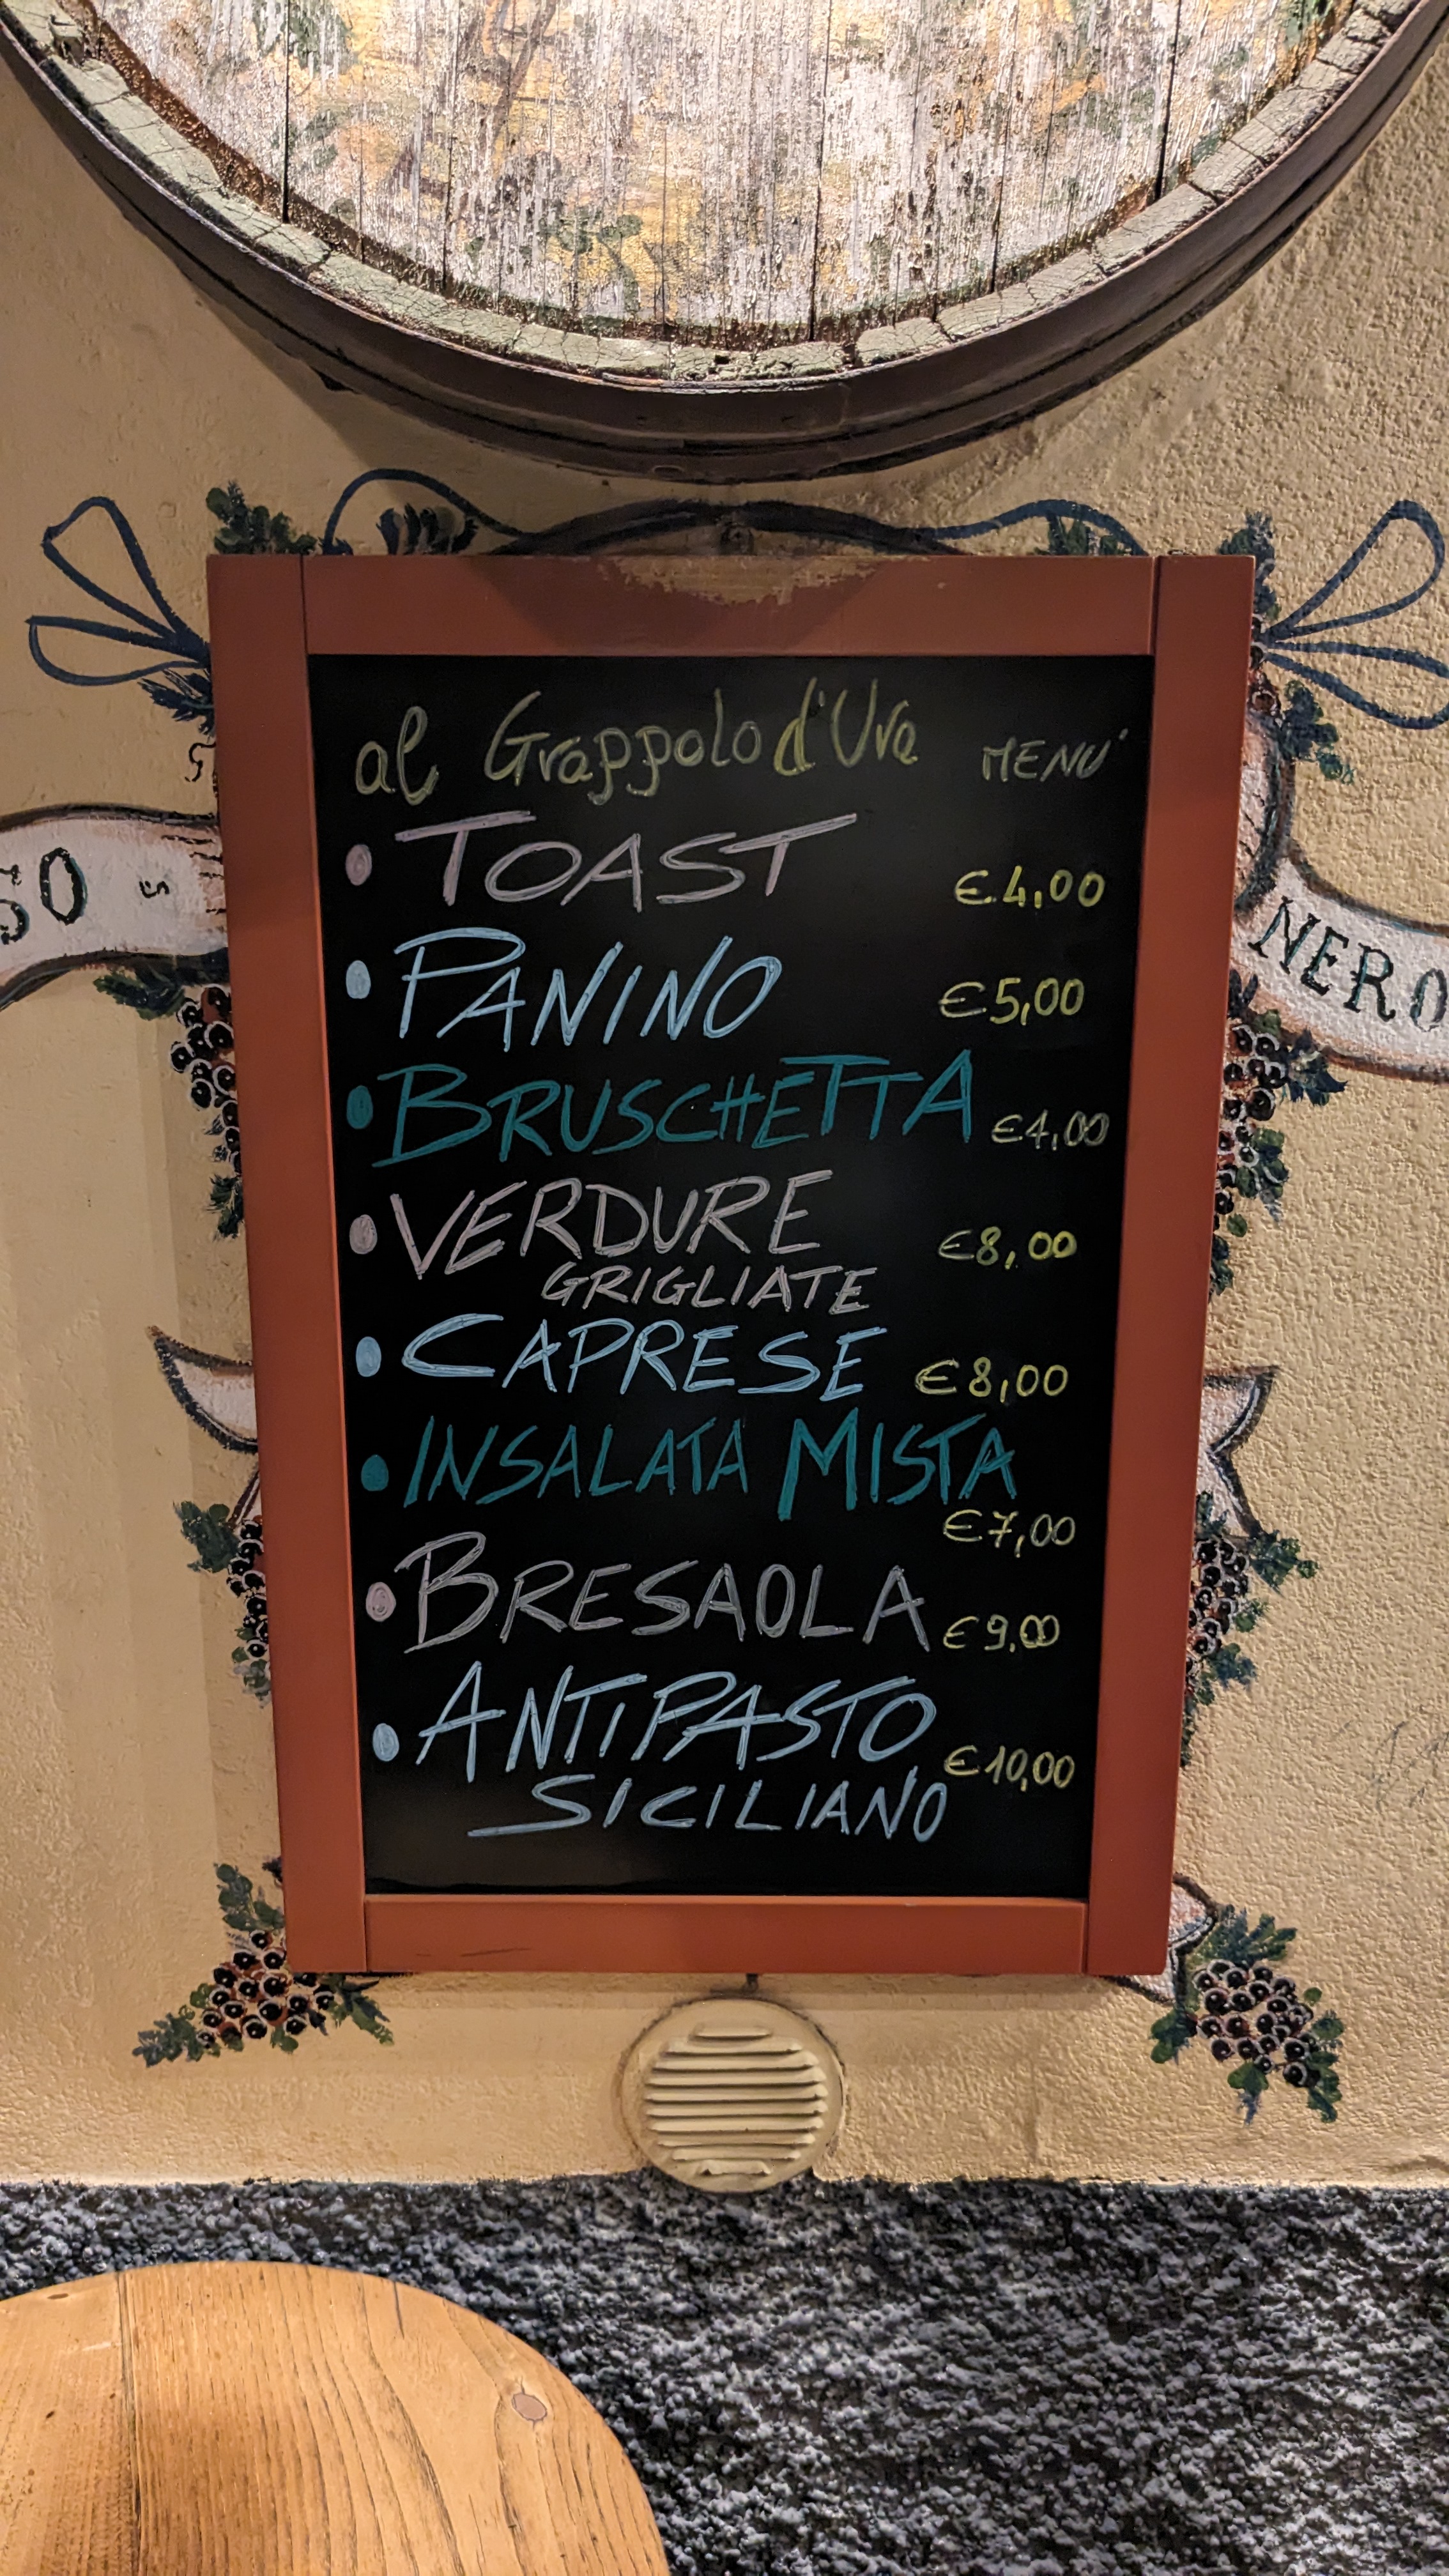 al Grappolo d'Uva MENU'
• TOAST €.4,00
• PANINO €5,00
• BRUSCHETTA €4,00
• VERDURE €8,00
GRIGLIATE
• CAPRESE €8,00
• INSALATA MISTA
€7,00
• BRESAOLA €9,00
• ANTIPASTO €10,00
SICILIANO
NERO